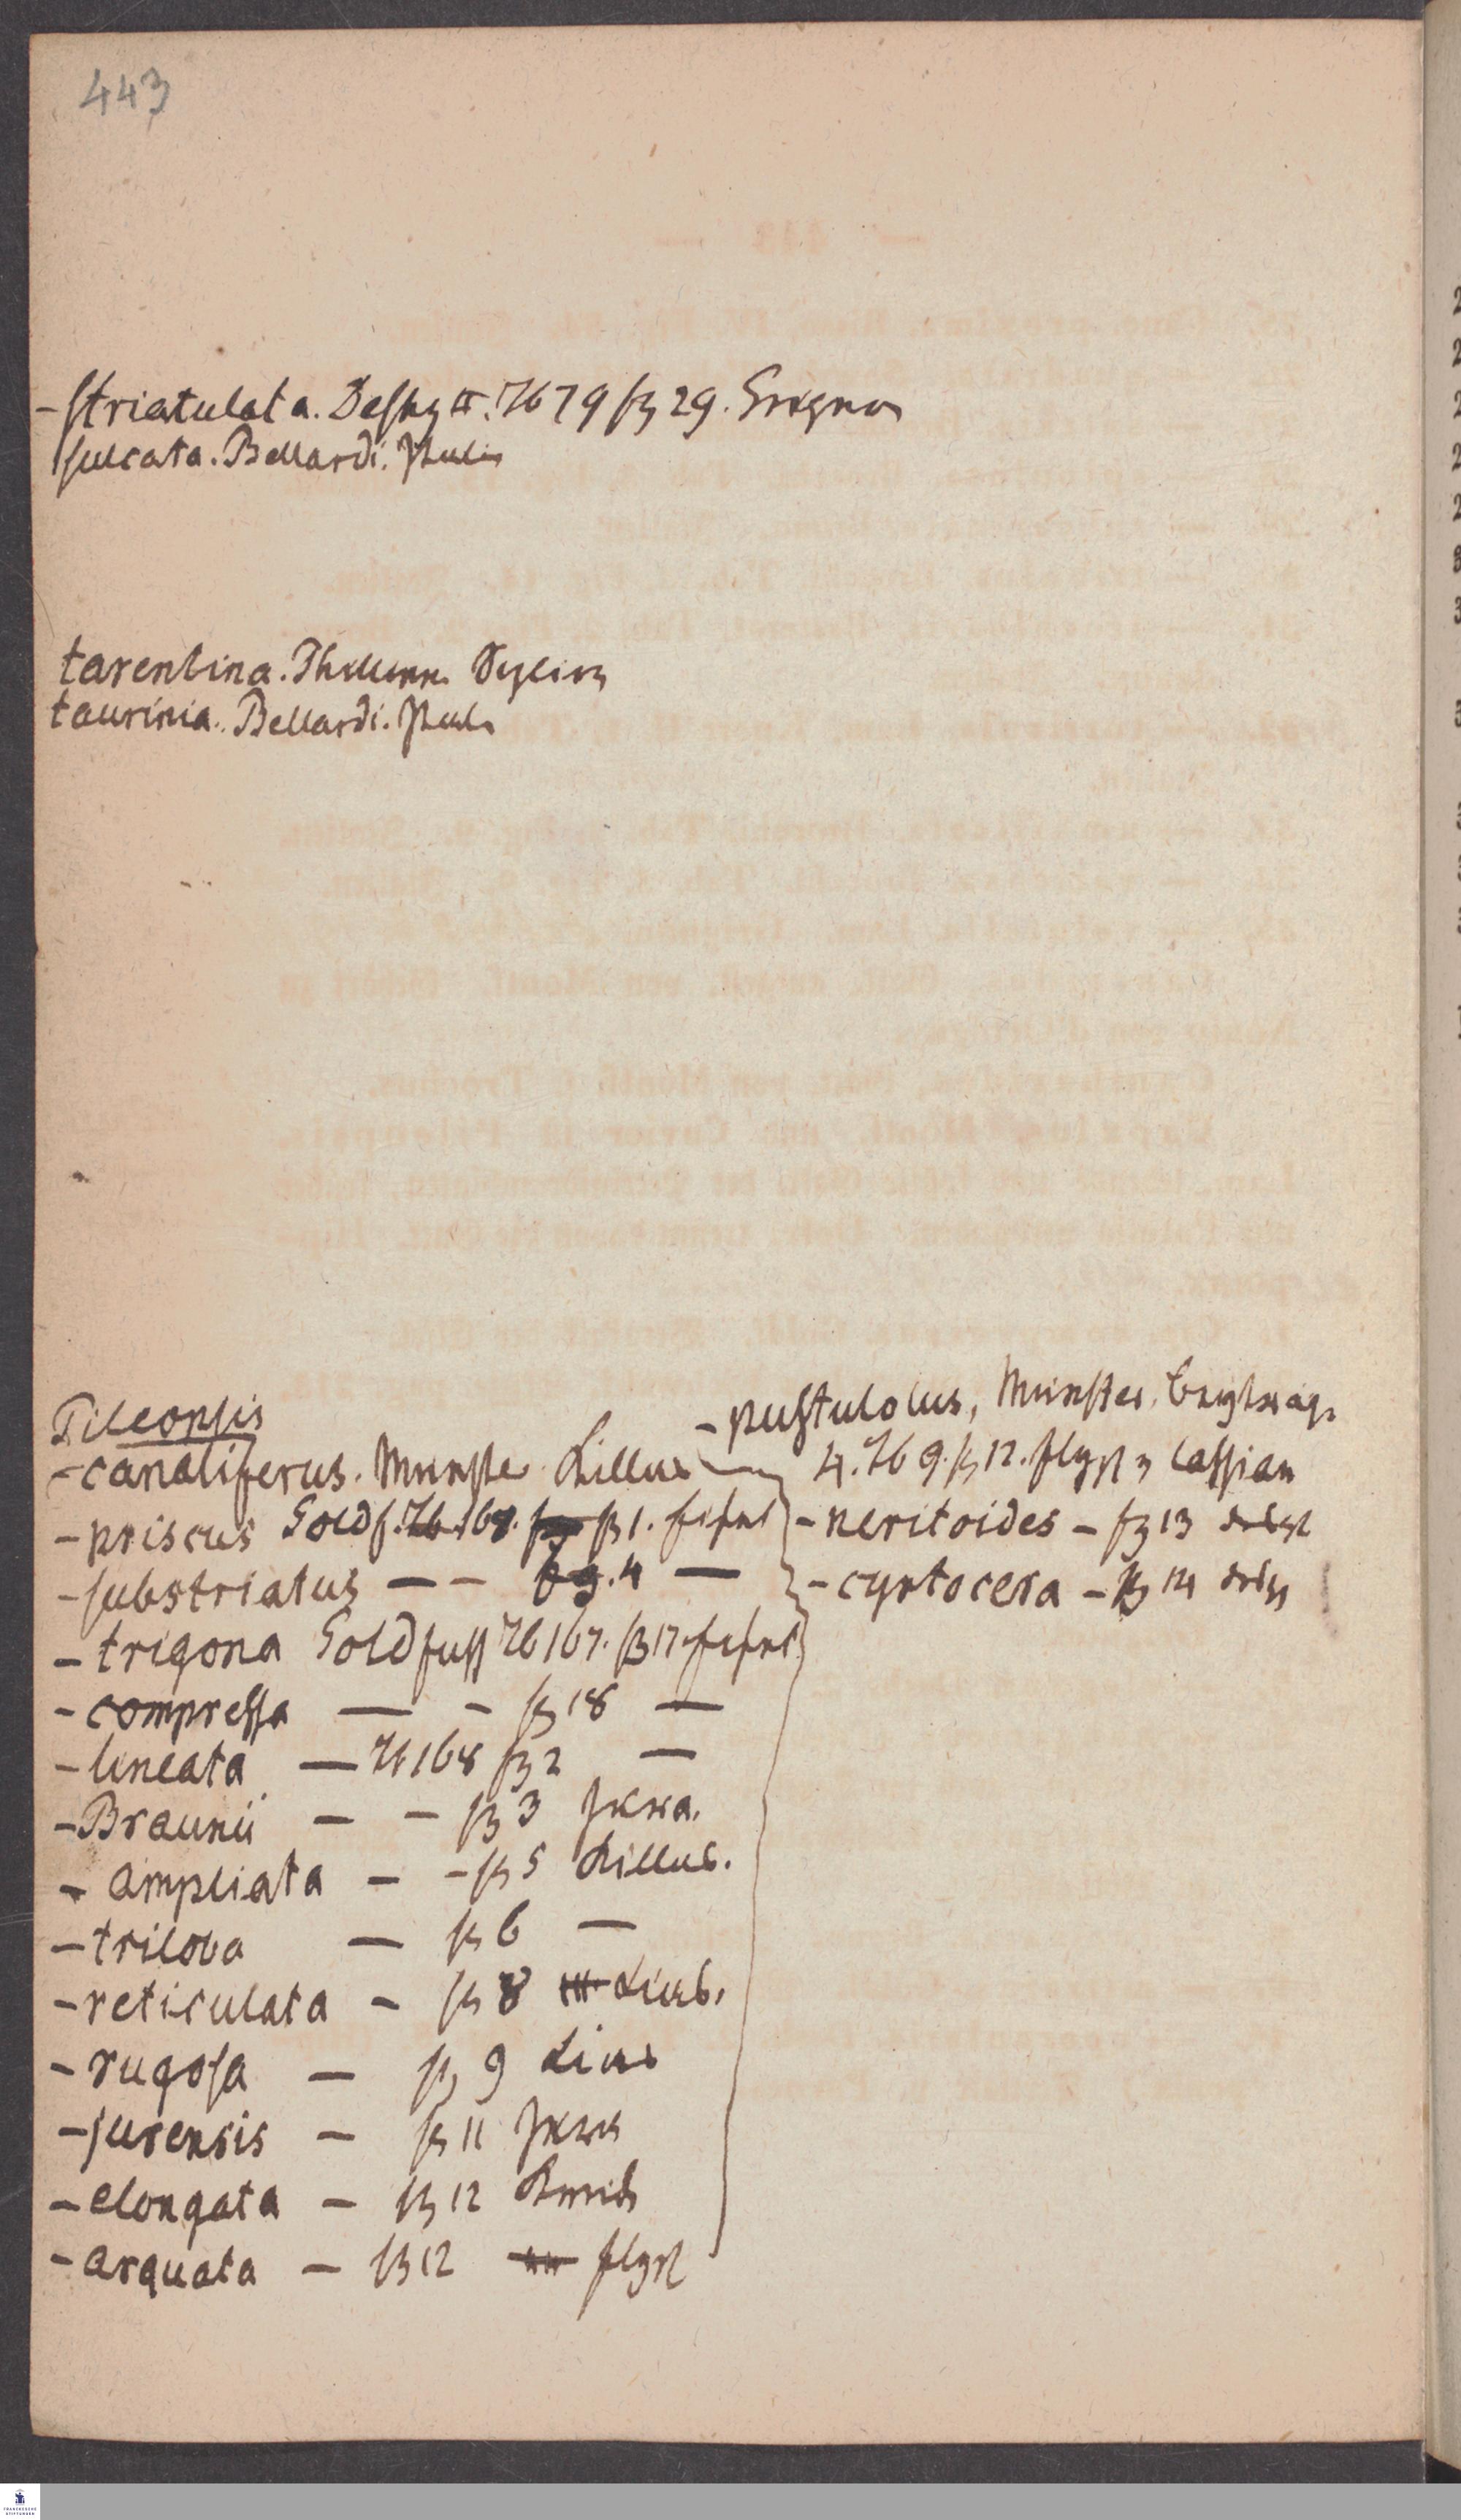 443
- striatulata. Deshy II. Tb 79 fig 29. Grignon
sulcata. Bellardi. Italien
tarentina. Philippi. Sizilien
taurinia. Bellardi. Italien
Pileopsis
- canaliferus. Münster
- priscus Goldf. Tb. 168. fig 1. Eifel
- substriatus — – fig. 4 —
- trigona Goldfuss Tb 167. fig 17. Eifel
- compressa — – fig 18 —
- lineata — Tb 168 fig 2 —
- Braunii – – fig 3 Jura.
- ampliata – – fig 5
- triloba — fig 6 —
- reticulata – fig 8
- rugosa — fig 9
- jurensis – fig 11 Jura
- elongata – fig 12
- arquata – fig 12
- pustulosus, Münster. Beyträge
4. Tb 9. fig 12. Cassian
- neritoides – fig 13
- cyrtocera – fig 14